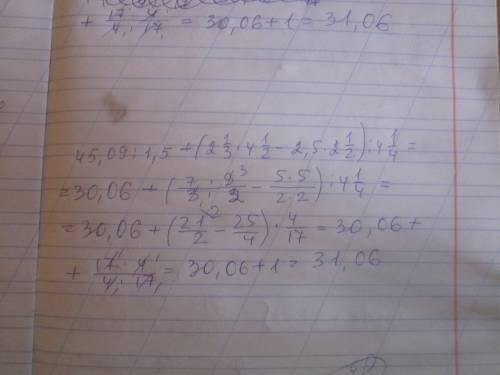 + 17 · 4 / 4 · 17 = 30,06 + 1 = 31,06
45,09 : 1,5 + (2 1/3 · 4 1/2 - 2,5 · 2 1/2) : 4 1/4 =
= 30,06 + (7 · 9 3 / 3 1 · 2 - 5 · 5 / 2 · 2) : 4 1/4 =
= 30,06 + (21 2 / 2 - 25/4) · 4/17 = 30,06 +
+ 17 1 · 4 1 / 4 1 · 17 1 = 30,06 + 1 = 31,06